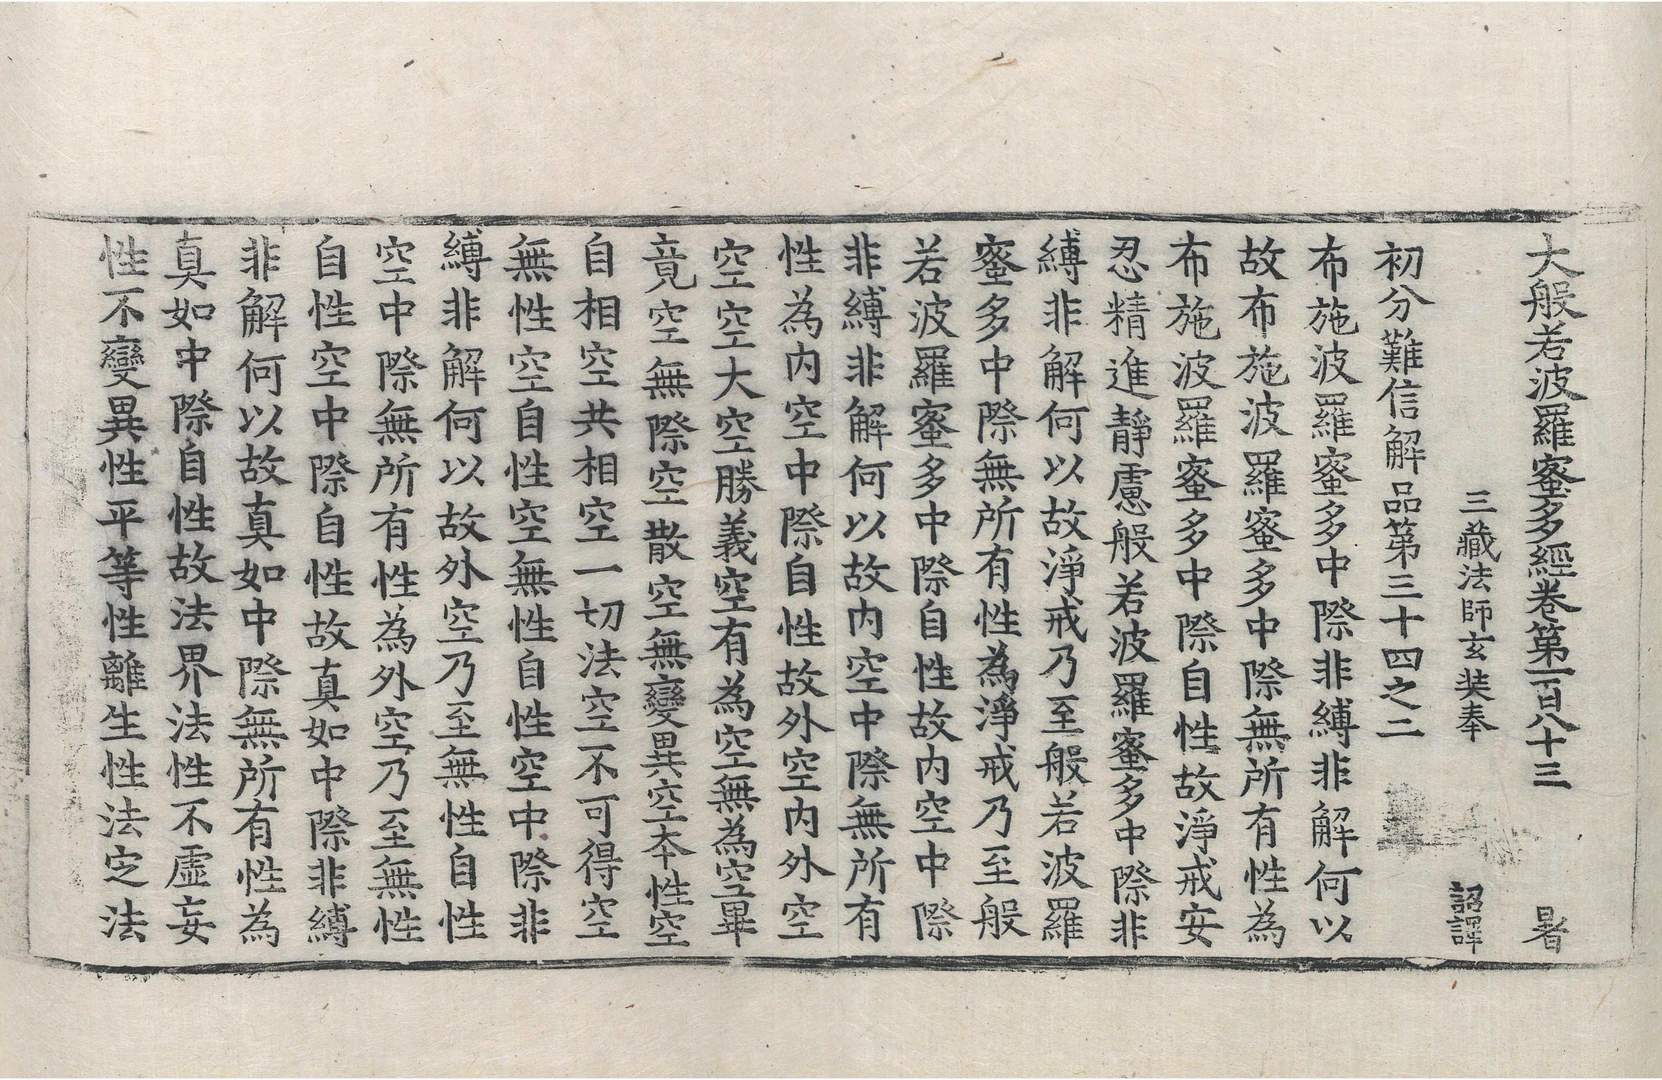 大般若波羅蜜多經卷第一百八十三 暑
三藏法師玄奘奉 詔譯
初分難信解品第三十四之二
布施波羅蜜多中際非縛非解何以
故布施波羅蜜多中際無所有性為
布施波羅蜜多中際自性故淨戒安
忍精進靜慮般若波羅蜜多中際非
縛非解何以故淨戒乃至般若波羅
蜜多中際無所有性為淨戒乃至般
若波羅蜜多中際自性故內空中際
非縛非解何以故內空中際無所有
性為內空中際自性故外空內外空
空空大空勝義空有為空無為空畢
竟空無際空散空無變異空本性空
自相空共相空一切法空不可得空
無性空自性空無性自性空中際非
縛非解何以故外空乃至無性自性
空中際無所有性為外空乃至無性
自性空中際自性故真如中際非縛
非解何以故真如中際無所有性為
真如中際自性故法界法性不虛妄
性不變異性平等性離生性法定法